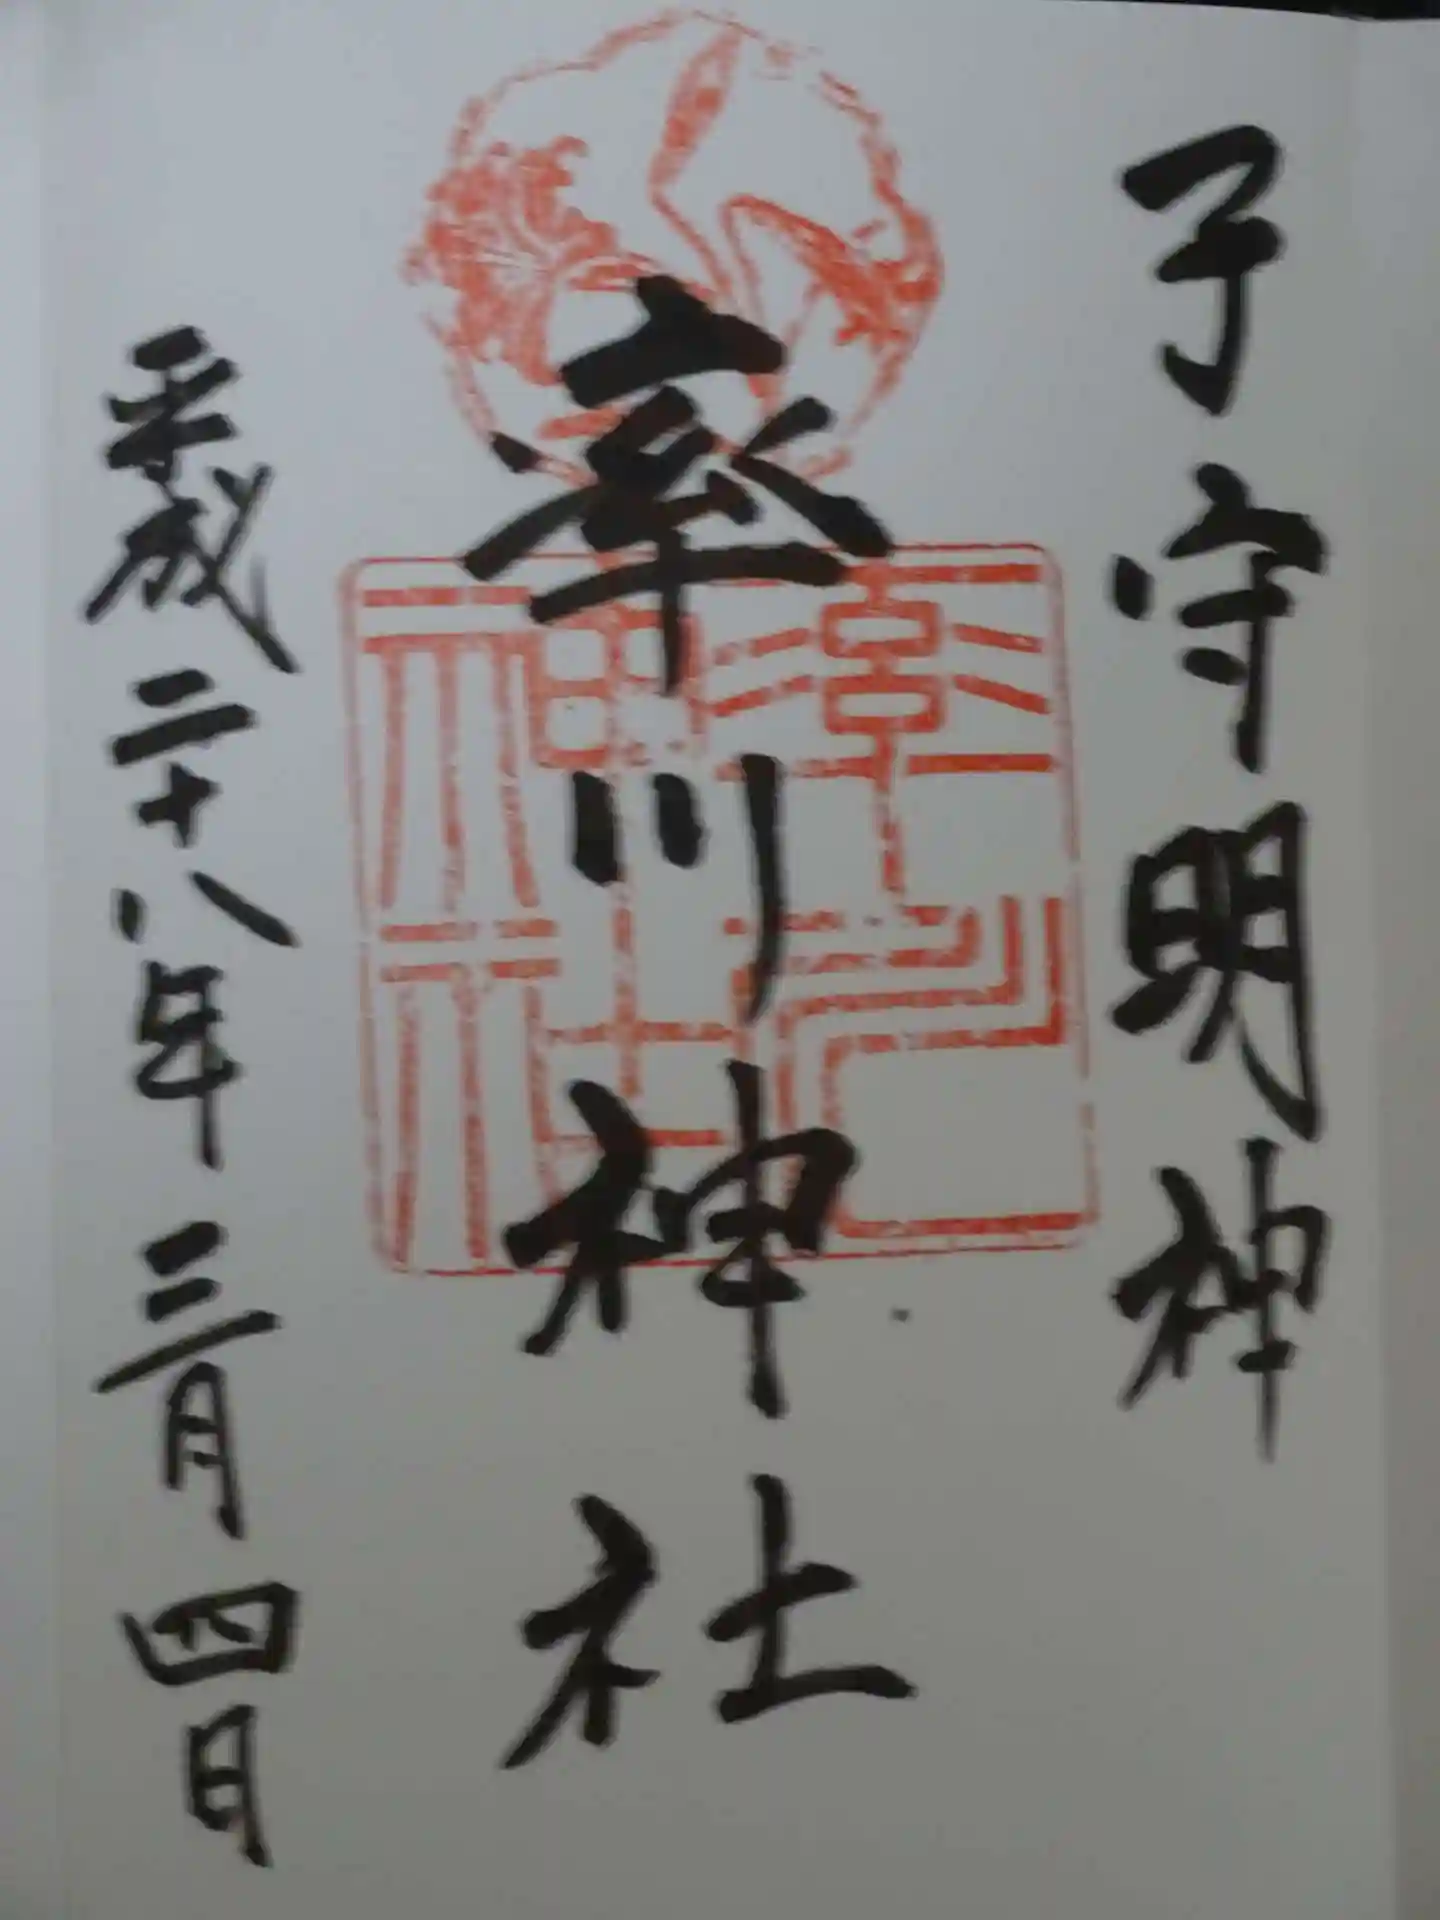 子守明神
率川神社
平成二十八年三月四日
率川神社